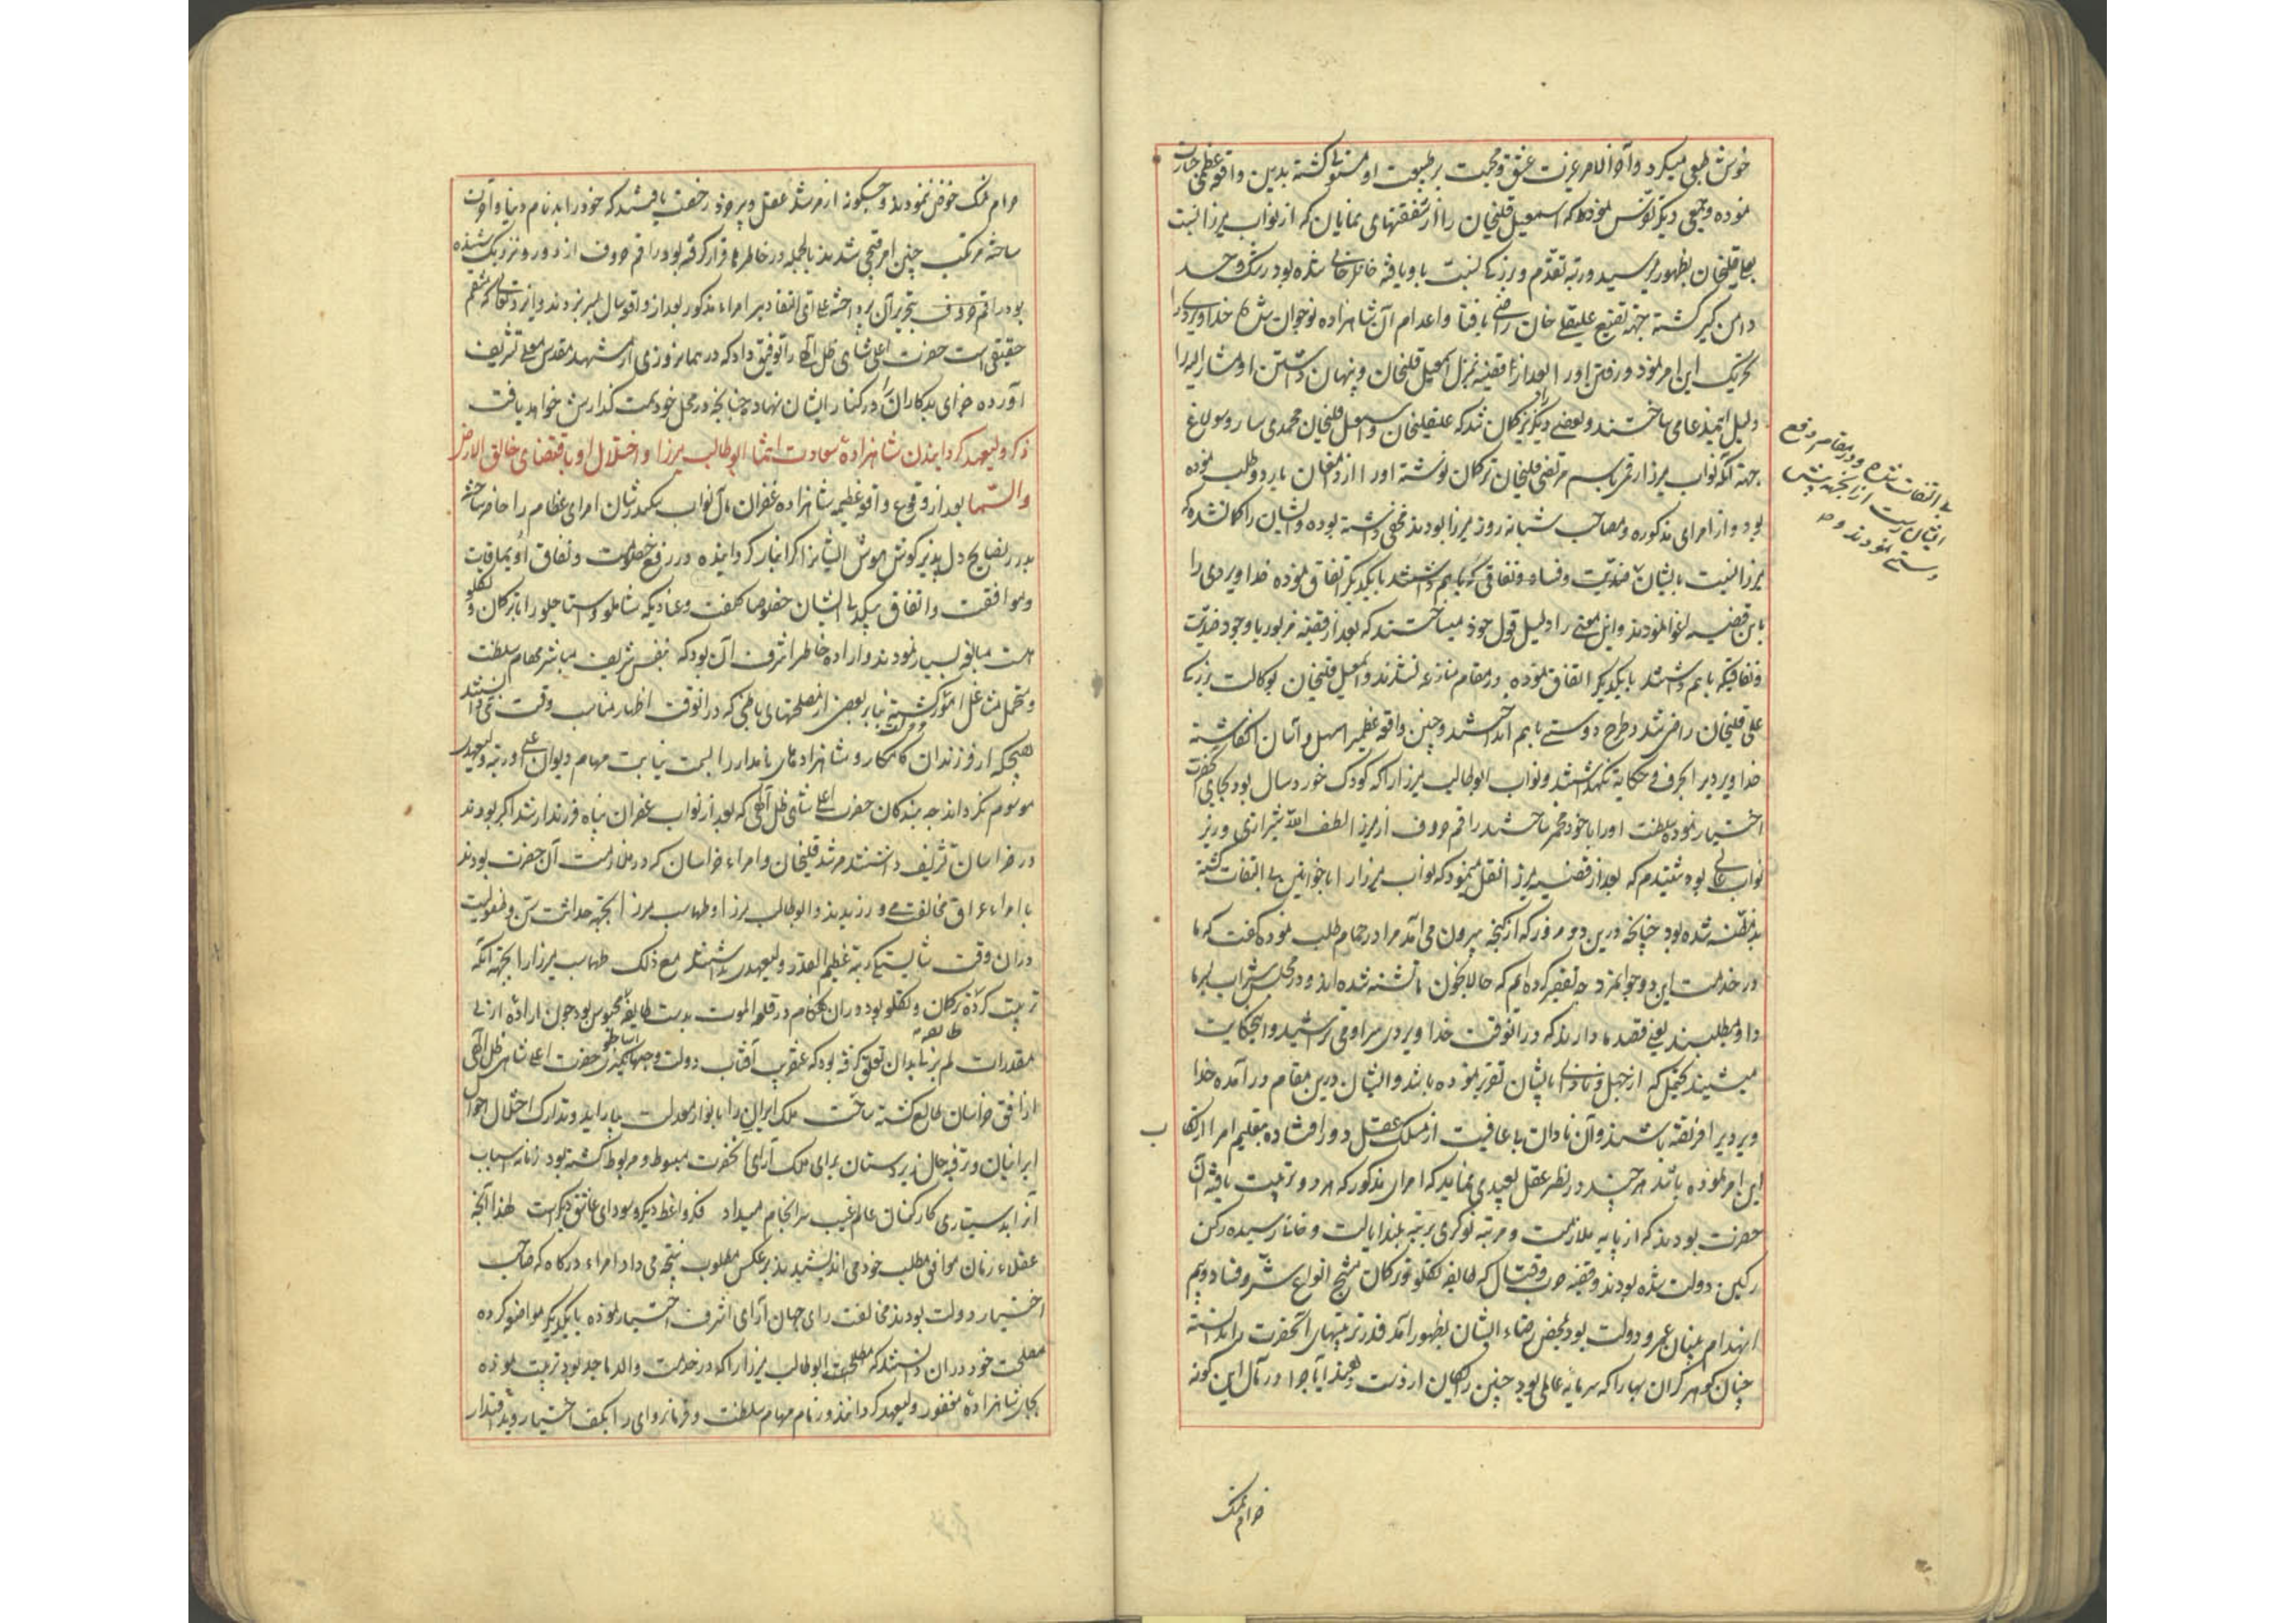 خوش طبعی میکرد و آخر الامر غیرت عشق و محبت بر طبیعت او مستولی گشته بدین واقعه عظمی جسارت
نموده و جمعی دیگر تونس نمودند که اسمعیل قلیخان را از شفقتهای نمایان که از نواب میرزا نسبت
بعلیقلیخان بظهور میرسید و رتبه تقدم و بزرگی نسبت باو یافته خانلرخانی شده بود رشک و حسد
دامن گیر گشته جهة تضییع علیقلی خان راضی بافنا و اعدام آن شاهزاده نوجوان شده خداویردی را
تحریک این امر نمود و رفتن او را بعد از قضیه بمنزل اسمعیل قلیخان و پنهان داشتن او مشار الیه را
دلیل این مدعا می ساختند و بعضی دیگر را گمان شد که علیقلیخان و اسمعیل قلیخان محمدی سارو سولاغ
جهة آنکه نواب میرزا رقمی باسم مرتضی قلیخان ترکمان نوشته او را از دامغان باردو طلب نموده
بود و از امرای مذکوره و مصاحب شبانه روز میرزا بودند مخفی داشته بوده و ایشان را گمان شده که
میرزا نسبت بایشان بی التفات شده و در مقام رفع ایشانست از آنجهت پیش دستی نمودند و
ضدیت و فساد و نفاقی که باهم داشتند بایکدیگر اتفاق نموده خداویردی را
باین قضیه اغوا نمودند و این معنی را دلیل قول خود میساختند که بعد از قضیه مزبور با وجود ضدیت
و نفاقیکه باهم داشتند بایکدیگر اتفاق نموده در مقام منازعه نشدند و اسمعیل قلیخان بوکالت و بزرگی
علی قلیخان راضی شد و طرح دوستی باهم انداختند و چنین واقعه عظیم را سهل و آسان انگاشته
خداویردی را بحرف و حکایة نگهداشتند و نواب ابوطالب میرزا را که کودک خورد سال بود بجای آنحضرت
اختیار نموده سلطنت او را باخود مخمر ساختند راقم حروف از میرزا لطف الله شیرازی وزیر
نواب عالی بوده شنیدم که بعد از قضیه میرزا نقل مینمود که نواب میرزا را با خوانین بی التفات گشته
بدمظنه شده بود چنانچه درین دو روز که از گنجه بیرون می آمد مرا در حمام طلب نموده گفت که ما
در خدمت این دو جوانمرد چه تقصیر کرده ایم که حالا بخون ما تشنه شده اند و در مجلس شراب سر ما
داو میطلبند یعنی قصد ما دارند که در آنوقت خداویردی سر او می تراشید و این حکایت
میشنید یحتمل که از جهل و نادانی بایشان تقریر نموده باشد و ایشان درین مقام در آمده خدا
ویردی را فریفته باشند و آن نادان بی عاقبت از مسلک عقل دور افتاده بتعلیم امرا ارتکاب
این امر نموده باشد هر چند در نظر عقل بعید می نماید که امرای مذکور که هر دو تربیت یافته آن
حضرت بودند که از پایه ملازمت و مرتبه نوکری برتبه بلند ایالت و خانی رسیده رکن
رکین دولت شده بودند و قضیه حرب و قتال که طایفه تکلو و ترکمان منتج انواع شر و فساد و بیم
انهدام بنیان عمر و دولت بود محض رضاء ایشان بظهور آمد قدر تربیتهای آنحضرت را ندانسته
چنان گوهر گران بها را که سرمایه عالمی بود چنین رایگان از دست دهند آیا چرا در مآل این گونه
حرام نمک
حرام نمک خوض ننمودند و چگونه از مرشد عقل و پیر خرد رخصت یافتند که خود را بدنام دنیا و آخرت
ساخته مرتکب چنین امر قبیحی شدند بالجمله در خاطرها قرار گرفته بود راقم حروف از دور و نزدیک شنیده
بود راقم حروف بتحریر آن پرداخته علی ای التقادیر امراء مذکور بعد از واقعه سال بسر نبردند و ایزد تعالی که منتقم
حقیقی است حضرت اعلی شاهی ظل اللهی را توفیق داد که در هما نروزی از مشهد مقدس معلی تشریف
آورده جزای بدکاران را در کنار ایشان نهاد چنانچه در محل خود سمت گذارش خواهد یافت
ذکر ولیعهد گردانیدن شاهزاده سعادت انتما ابوطالب میرزا و اختلال او باقتضای خالق الارض
والسما بعد از وقوع واقعه عظیمه شاهزاده غفران مآل نواب سکندر شان امرای عظام را حاضر ساخته
بدرر نصایح دل پذیر گوش هوش ایشانرا گرانبار گردانیده در رفع خصومت و نفاق اویماقات
و موافقت و اتفاق یکدیگر ایشان خصوصا کلفت و عنادیکه شاملو و استاجلو را با ترکمان و تکلو
است مبالغه بسیار نمودند و اراده خاطر اشرف آن بود که بنفس شریف مباشر مهام سلطنت
و متحمل مشاغل امور گشته بنابر بعضی از مصلحتهای باطنی که در آنوقت اظهار مناسب وقت نمی دانستند
هیچیک از فرزندان کامکار و شاهزاده های نامدار را بسمت نیابت مهام دیوان اعلی و رتبه ولیعهد
موسوم نگرداند چه بندگان حضرت اعلی شاهی ظل اللهی که بعد از نواب غفران پناه فرزند ارشد اکبر بودند
در خراسان تشریف داشتند مرشد قلیخان و امراء خراسان که در ملازمت آن حضرت بودند
با امراء عراق مخالفت می ورزیدند و ابوطالب میرزا و طهماسب میرزا بجهة حداثت سن و طفولیت
در ان وقت شایستگی رتبه عظیم القدر ولیعهدی نداشتند مع ذلک طهماسب میرزا را بجهة آنکه
تربیت کرده ترکمان و تکلو بود در ان هنگام در قلعه الموت بدست طایفه محبوس بود چون اراده ازلی
مقدرات لم یزلی بدان تعلق گرفته بود که عنقریب آفتاب دولت و جهانگیری حضرت اعلی شاهی ظل اللهی
از افق خراسان طالع گشته ساحت ملک ایران را بانوار معدلت بیاراید و تدارک اختلال احوال
ایرانیان و ترفیه حال زیردستان برای ملک آرای آنحضرت مبسوط و مربوط گشته بود زمانه اسباب
آنرا بدستیاری کارکنان عالم غیب سرانجام میداد فکر واعظ دیگر و سودای عاشق دیگر است لهذا آنچه
عقلاء زمان موافق مطلب خود می اندیشیدند بر عکس مطلوب نتیجه می داد امراء درگاه که صاحب
اختیار دولت بودند مخالفت رای جهان آرای اشرف اختیار نموده بایکدیگر مواضعه کرده
مصلحت خود در ان دانستند که ابوطالب میرزا را که در خدمت والد ماجد بود تربیت نموده
بجای شاهزاده مغفور ولیعهد گردانند و زمام مهام سلطنت و فرمانروایی را بکف اختیار و ید اقتدار